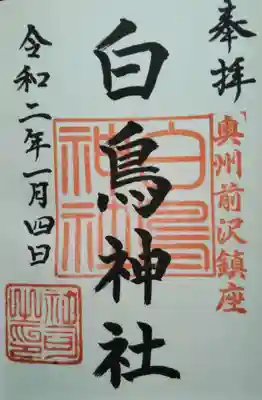 奉拝
奥州前沢鎮座
白鳥神社
白鳥神社
令和二年一月四日